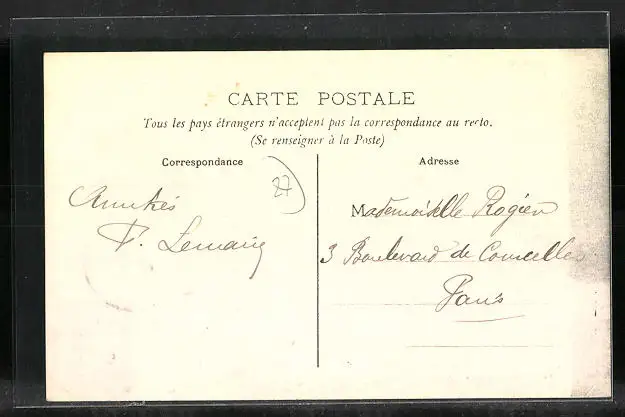 CARTE POSTALE
Tous les pays étrangers n'acceptent pas la correspondance au recto.
(Se renseigner à la Poste)
Correspondance
Adresse
27
Amitiés
F. Lemaire
Mademoiselle Rogier
3 Boulevard de Courcelles
Paris